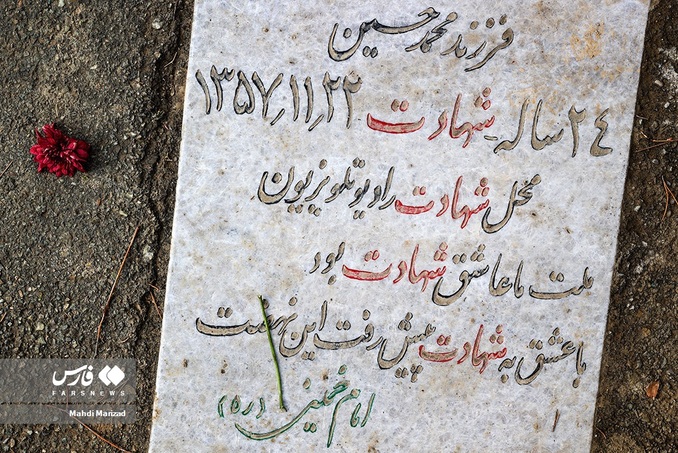 فرزند محمد حسین
۲۴ ساله - شهادت ۱۳۵۷/۱۱/۲۲
محل شهادت رادیو تلویزیون
ملت ما عاشق شهادت بود
با عشق به شهادت پیش رفت این نهضت
امام خمینی (ره)
۱
فارس
FARSNEWS
Mahdi Marizad